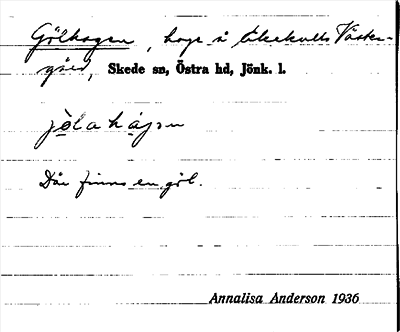 Gölhagen, hage å Ekekulls Väster-
gård, Skede sn, Östra hd, Jönk. l.
jölahajən
Där finns en göl.
Annalisa Anderson 1936